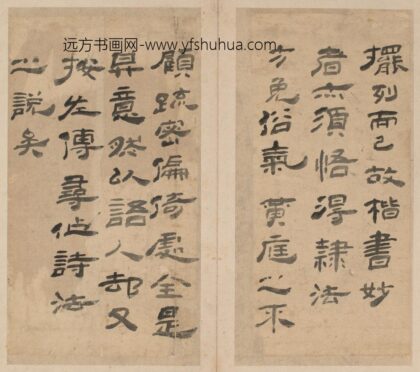 远方书画网-www.yfshuhua.com
擺列而已故楷書妙
者亦須悟得隸法
方免俗氣黃庭之不
顧疏密偏倚處全是
意然以語人却又
按左傳尋詩法
之說矣